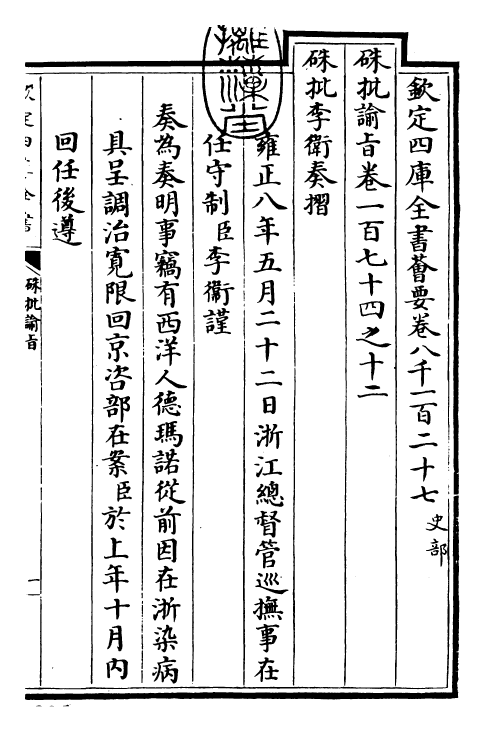 欽定四庫全書薈要卷八千一百二十七 史部
硃批諭㫖卷一百七十四之十二
硃批李衛奏摺
雍正八年五月二十二日浙江總督管巡撫事在
任守制臣李衛謹
奏為奏明事竊有西洋人德瑪諾從前因在浙染病
具呈調治寛限回京咨部在案臣於上年十月內
回任後遵
硃批諭㫖
一